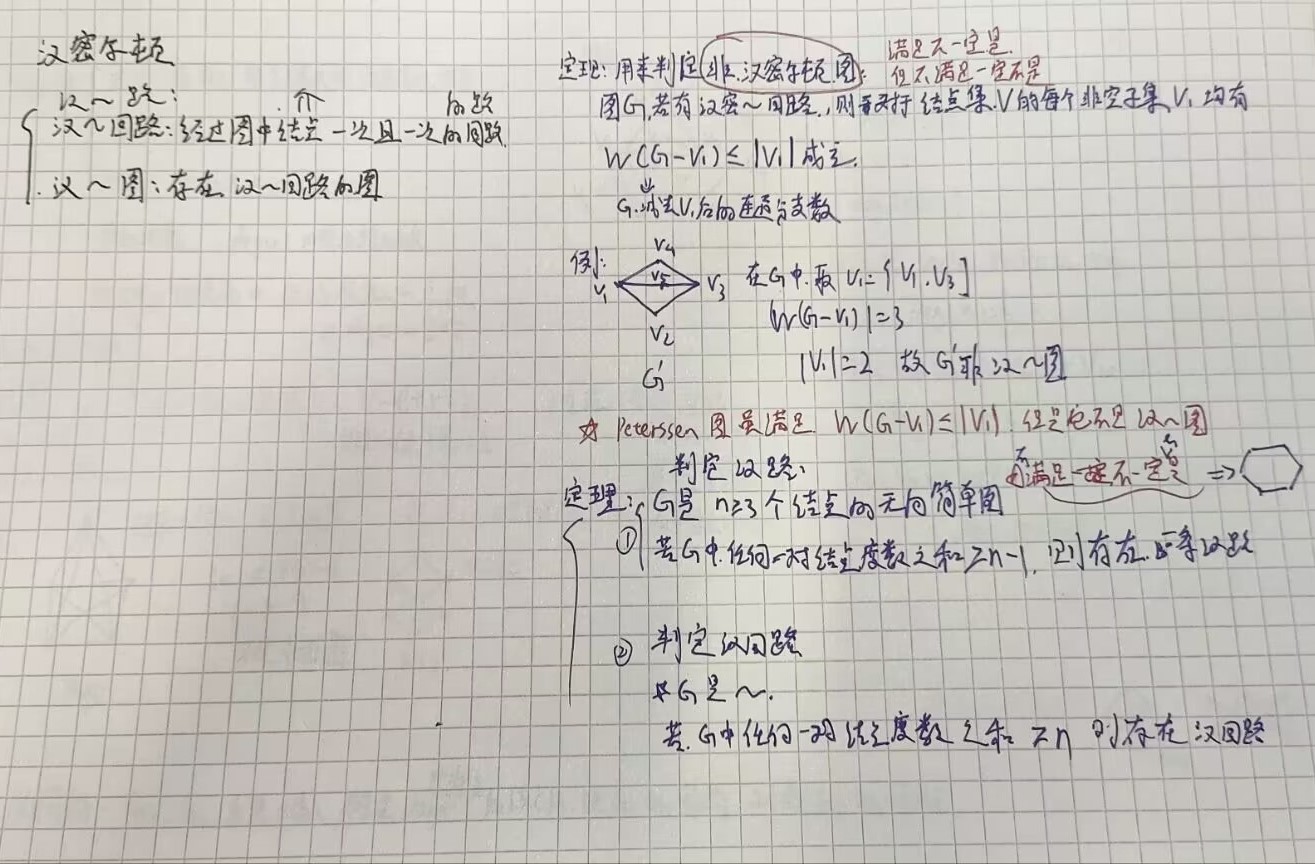 汉密尔顿
汉~路: 个 的路
汉~回路:经过图中结点一次且一次的回路.
汉~图:存在汉~回路的图
定理:用来判定非汉密尔顿图:
满足不一定是.
但不满足一定不是
图G,若有汉密~回路,则对于结点集V的每个非空子集V₁均有
W(G-V₁)≤|V₁|成立.
↓
G减去V₁后的连通分支数
例:
V₄
V₅
V₁ V₃
V₂
G'
在G中取V₁={V₁,V₃}
|W(G-V₁)|=3
|V₁|=2 故G'非汉~图
☆ Peterssen 图虽满足 W(G-V₁)≤|V₁| 但是它不是汉~图
判定汉路:
不满足一定不一定是 ⇒
定理: G是 n≥3个结点的无向简单图
① 若G中任何一对结点度数之和≥n-1, 则存在一条汉路
② 判定汉回路
G是~.
若G中任何一对结点度数之和≥n 则存在汉回路